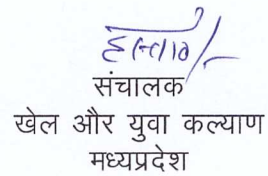 हस्ता०/-
संचालक
खेल और युवा कल्याण
मध्यप्रदेश